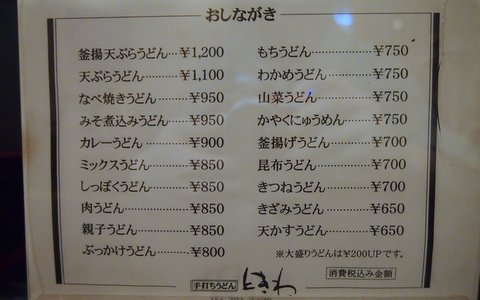 おしながき
釜揚天ぷらうどん…¥1,200
天ぷらうどん…………¥1,100
なべ焼きうどん………¥950
みそ煮込みうどん……¥950
カレーうどん…………¥900
ミックスうどん………¥850
しっぽくうどん………¥850
肉うどん………………¥850
親子うどん……………¥850
ぶっかけうどん………¥800
もちうどん……………¥750
わかめうどん…………¥750
山菜うどん……………¥750
かやくにゅうめん……¥750
釜揚げうどん…………¥700
昆布うどん……………¥700
きつねうどん…………¥700
きざみうどん…………¥650
天かすうどん…………¥650
※大盛りうどんは¥200UPです。
消費税込み金額
手打ちうどん